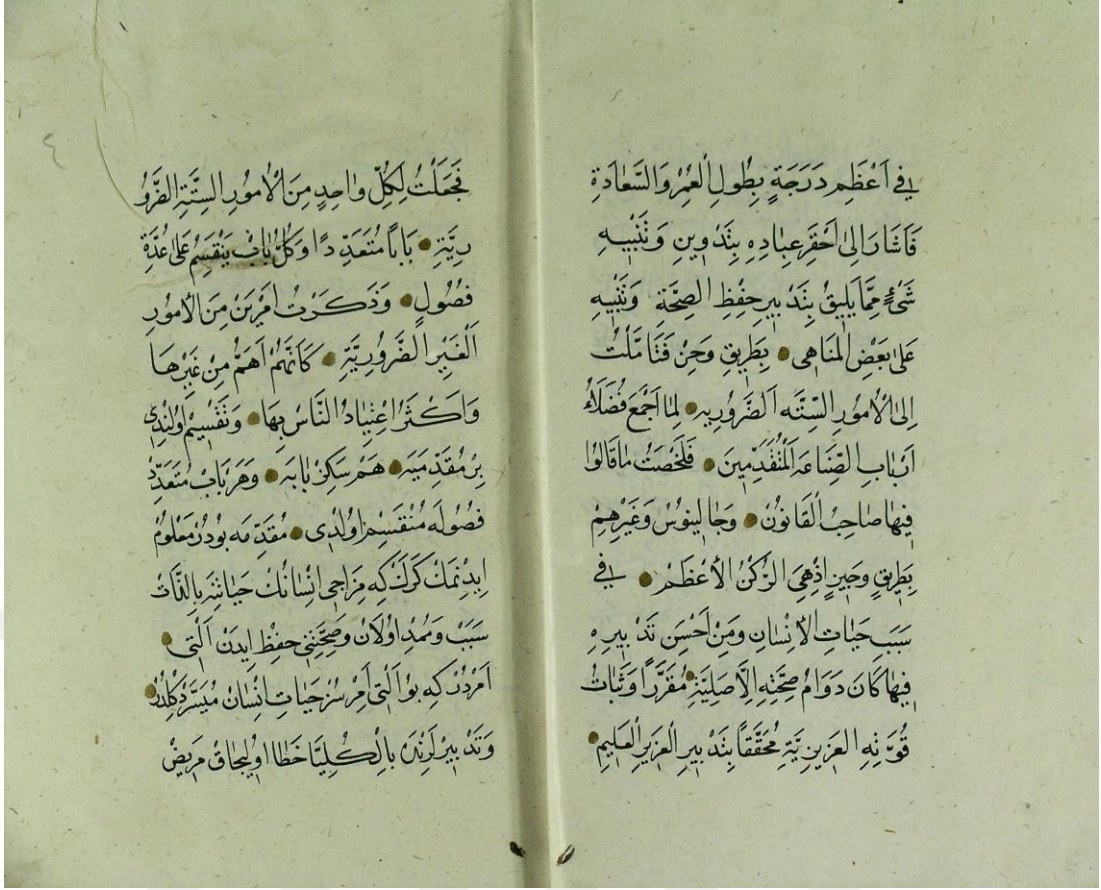 في اَعْظَمِ دَرَجَةٍ بِطُولِ الْعُمْرِ وَالسَّعَادَةِ
فَاَشَارَ اِلٰى اَحْقَرِ عِبَادِهِ بِتَدْوِينِ وَتَنْبِيهِ
شَئٍ مِمَّا يَلِيقُ بِتَدْبِيرِ حِفْظِ الصِّحَّةِ وَتَنْبِيهِ
عَلٰى بَعْضِ الْمَنَاهِى بِطَرِيقِ وَحِنْ فَتَأَمَّلْتُ
اِلَى الْاُمُورِ السِّتَّه الضَّرُورِيه لِمَا اَجْمَعَ فُضَلَاءُ
اَرْبَابِ الصِّنَاعَه الْمُتَقَدِّمِينَ فَلَخَّصْتُ مَا قَالُوا
فِيهَا صَاحِبُ الْقَانُونْ وَجَالِينُوسْ وَغَيْرِهِمْ
بِطَرِيقٍ وَجِيزٍ اِذْ هِىَ الرُّكْنُ الْاَعْظَمْ في
سَبَبِ حَيَاتِ الْاِنْسَانِ وَمَنْ اَحْسَنَ تَدْبِيرِهِ
فِيهَا كَانَ دَوَامُ صِحَّتِهِ الْاَصْلِيَّةِ مُقَرَّرًا وَثَبَاتُ
قُوَّتِهِ الْعَزِيزِيَّةِ مُحَقَّقًا بِتَدْبِيرِ الْعَزِيزِ الْعَلِيمِ
٤
فَجَعَلْتُ لِكُلِّ وَاحِدٍ مِنَ الْاُمُورِ السِّتَّةِ الضَّرُو
رِيَّةِ بَابًا مُتَعَدِّدًا وَكُلُّ بَابْ يَنْقَسِمُ عَلٰى عُدَّةِ
فُصُولٍ وَذَكَرْتُ اَمْرَيْنِ مِنَ الْاُمُورِ
الْغَيْرِ الضَّرُورِيَّةِ كَاَنَّهُمْ اَهَمُّ مِنْ غَيْرِهَا
وَاَكْثَرُ اعْتِيَادُ النَّاسِ بِهَا وَتَقْسِيمْ اُولِنْدِى
بِرْ مُقَدِّمَيَه هَمْ سَكِزْ بَابَه وَهَرْ بَابْ مُتَعَدِّدْ
فُصُولَه مُنْقَسِمْ اُولْدِى مُقَدِّمَه بُودُرْ مَعْلُومْ
اِيدِنْمَكْ كَرَكْ كِه مِزَاجِى اِنْسَانِكْ حَيَاتِنَه بِالذَّاتْ
سَبَبْ وَمُمِدْ اُولَانْ وَصِحَّتِنِى حِفْظْ اِيدَنْ اَلْتِى
اَمْرْدُرْ كِه بُو اَلْتِى اَمِرْسُزْ حَيَاتِ اِنْسَانْ مُيَسَّرْ دَكِلْدُرْ
وَتَدْبِيرْلَرِنْدَه بِالْكُلِّيَّا خَطَا اُولِيجَاقْ مَرِيضْ